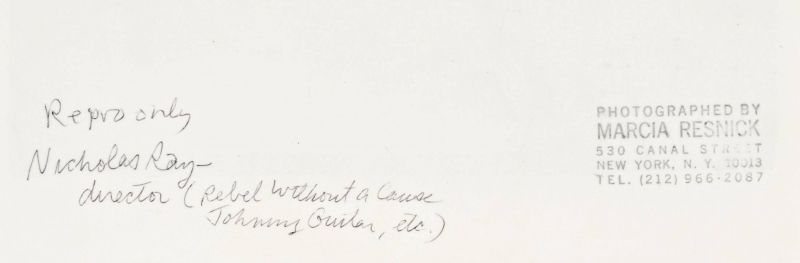 Repro only
Nicholas Ray-
director (Rebel Without a Cause
Johnny Guitar, etc.)
PHOTOGRAPHED BY
MARCIA RESNICK
530 CANAL STREET
NEW YORK, N. Y. 10013
TEL. (212) 966-2087